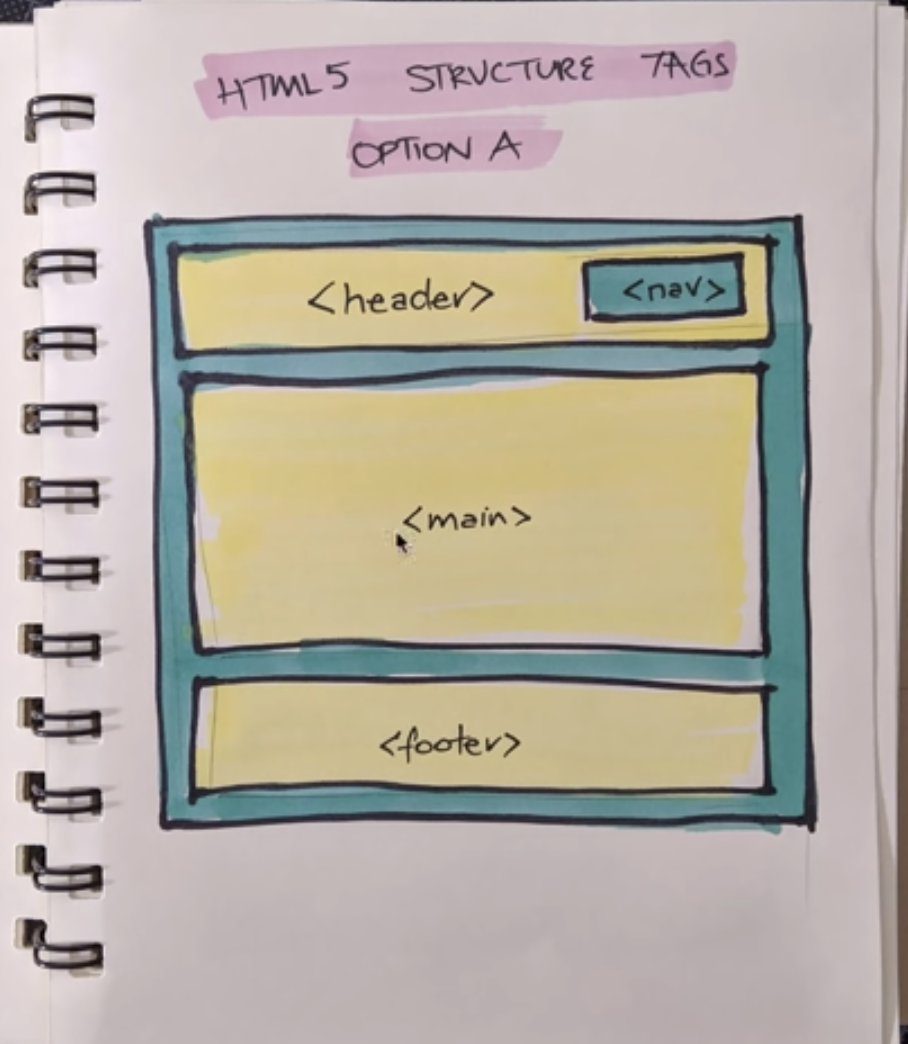 HTML5 STRUCTURE TAGS
OPTION A
<header> <nav>
<main>
<footer>